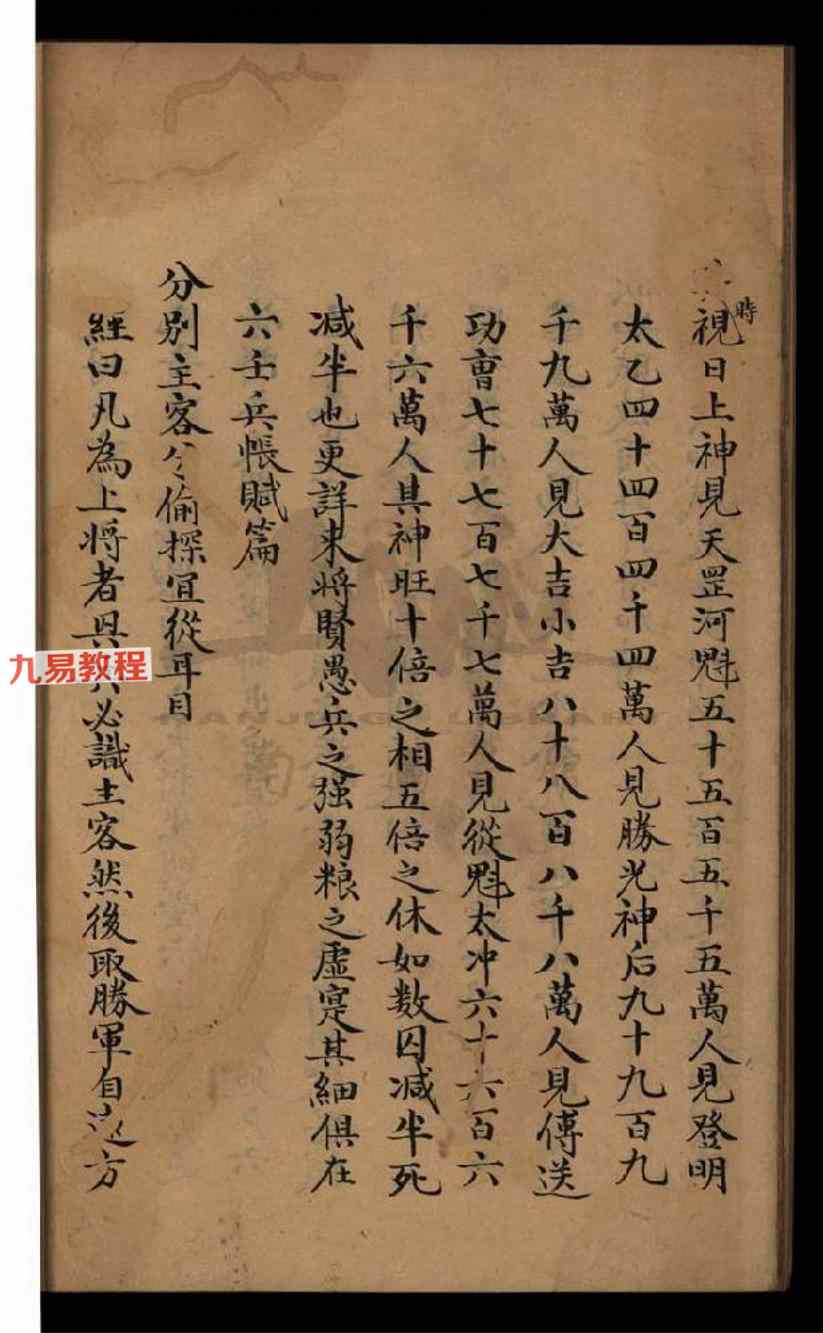 時視日上神見天罡河魁五十五百五千五萬人見登明
太乙四十四百四千四萬人見勝光神后九十九百九
千九萬人見大吉小吉八十八百八千八萬人見傳送
功曹七十七百七千七萬人見從魁太冲六十六百六
千六萬人其神旺十倍之相五倍之休如数囚减半死
减半也更詳来將賢愚兵之强弱粮之虛寔其細俱在
六壬兵帳賦篇
分別主客兮偷探宜從耳目
經曰凡為上將者必識主客然後取勝軍自遠方
九易教程